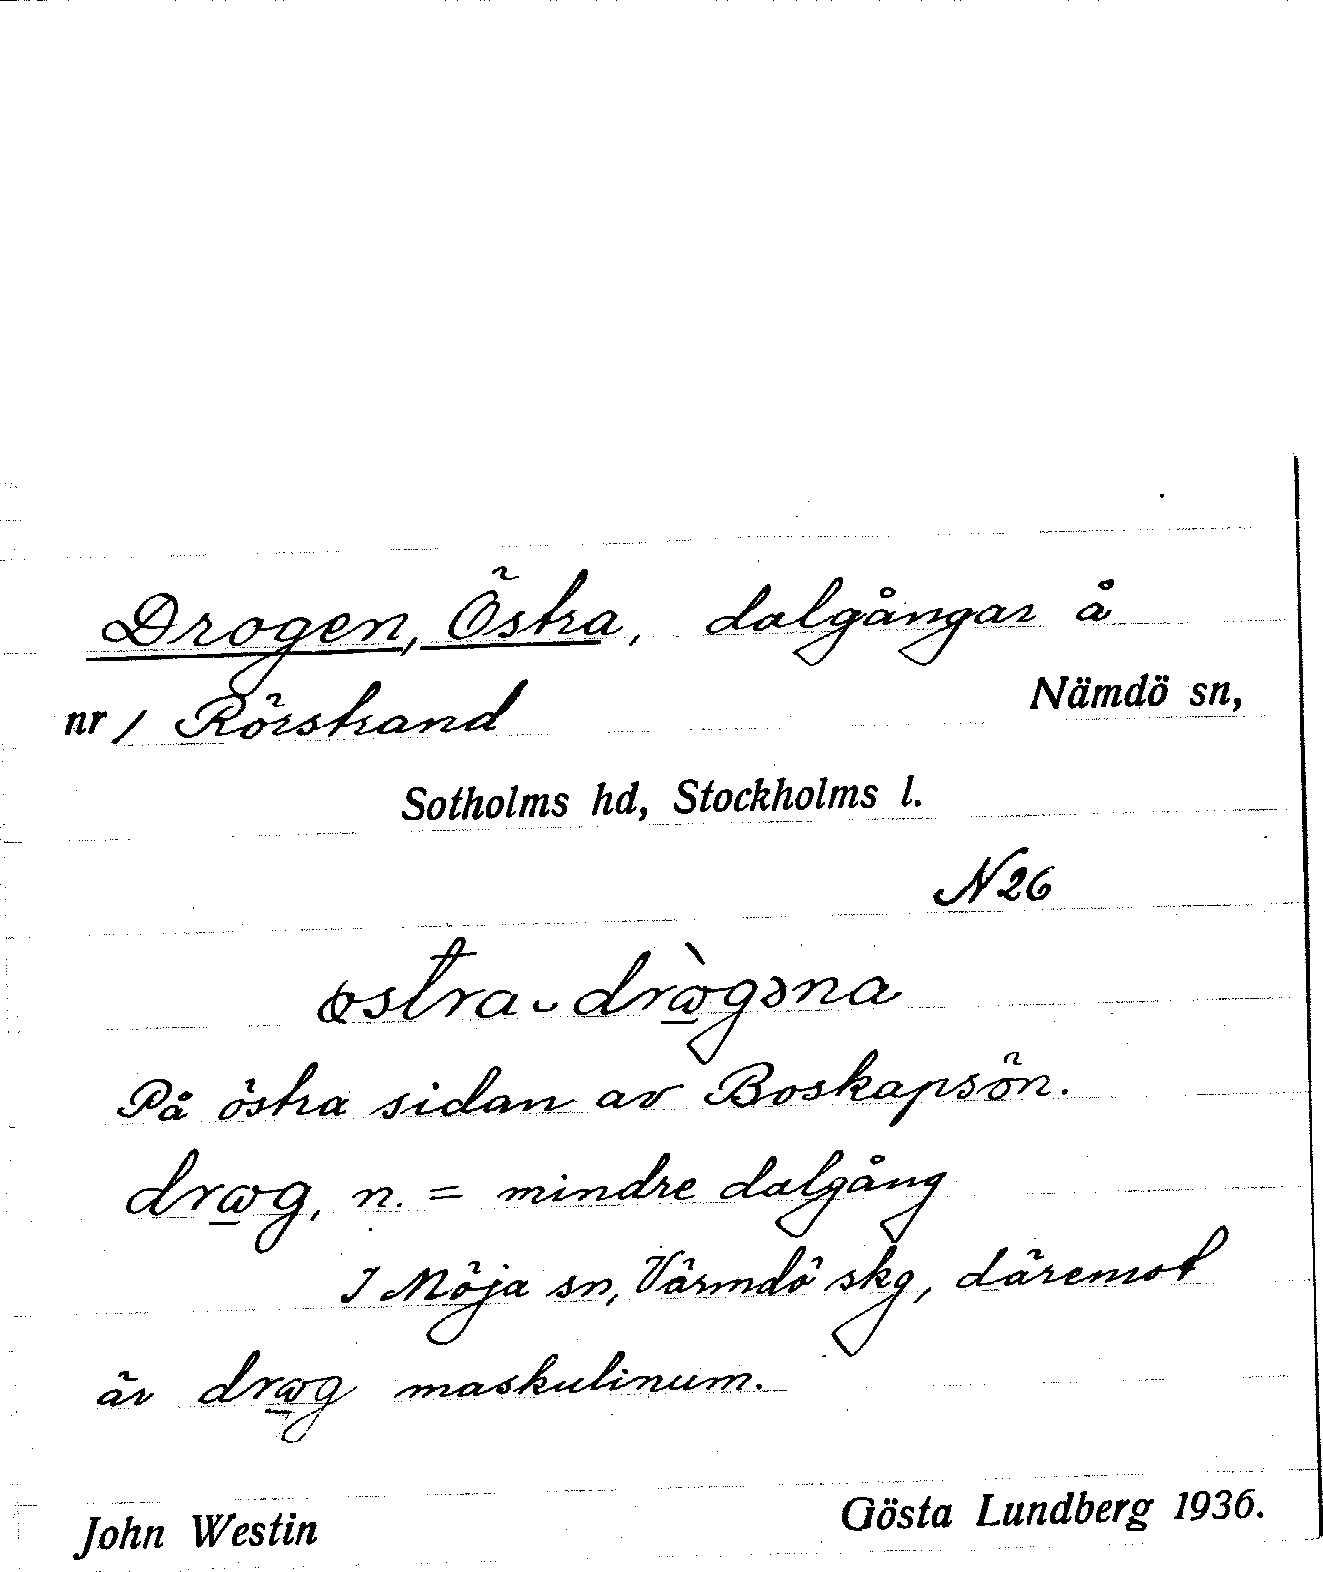 Drogen, Östra, dalgångar å
nr 1 Rörstrand Nämdö sn,
Sotholms hd, Stockholms l.
N 26
östra drògəna
På östra sidan av Boskapsön.
drωg, n. = mindre dalgång
I Möja sn, Värmdö skg, däremot
är drωg maskulinum.
John Westin Gösta Lundberg 1936.